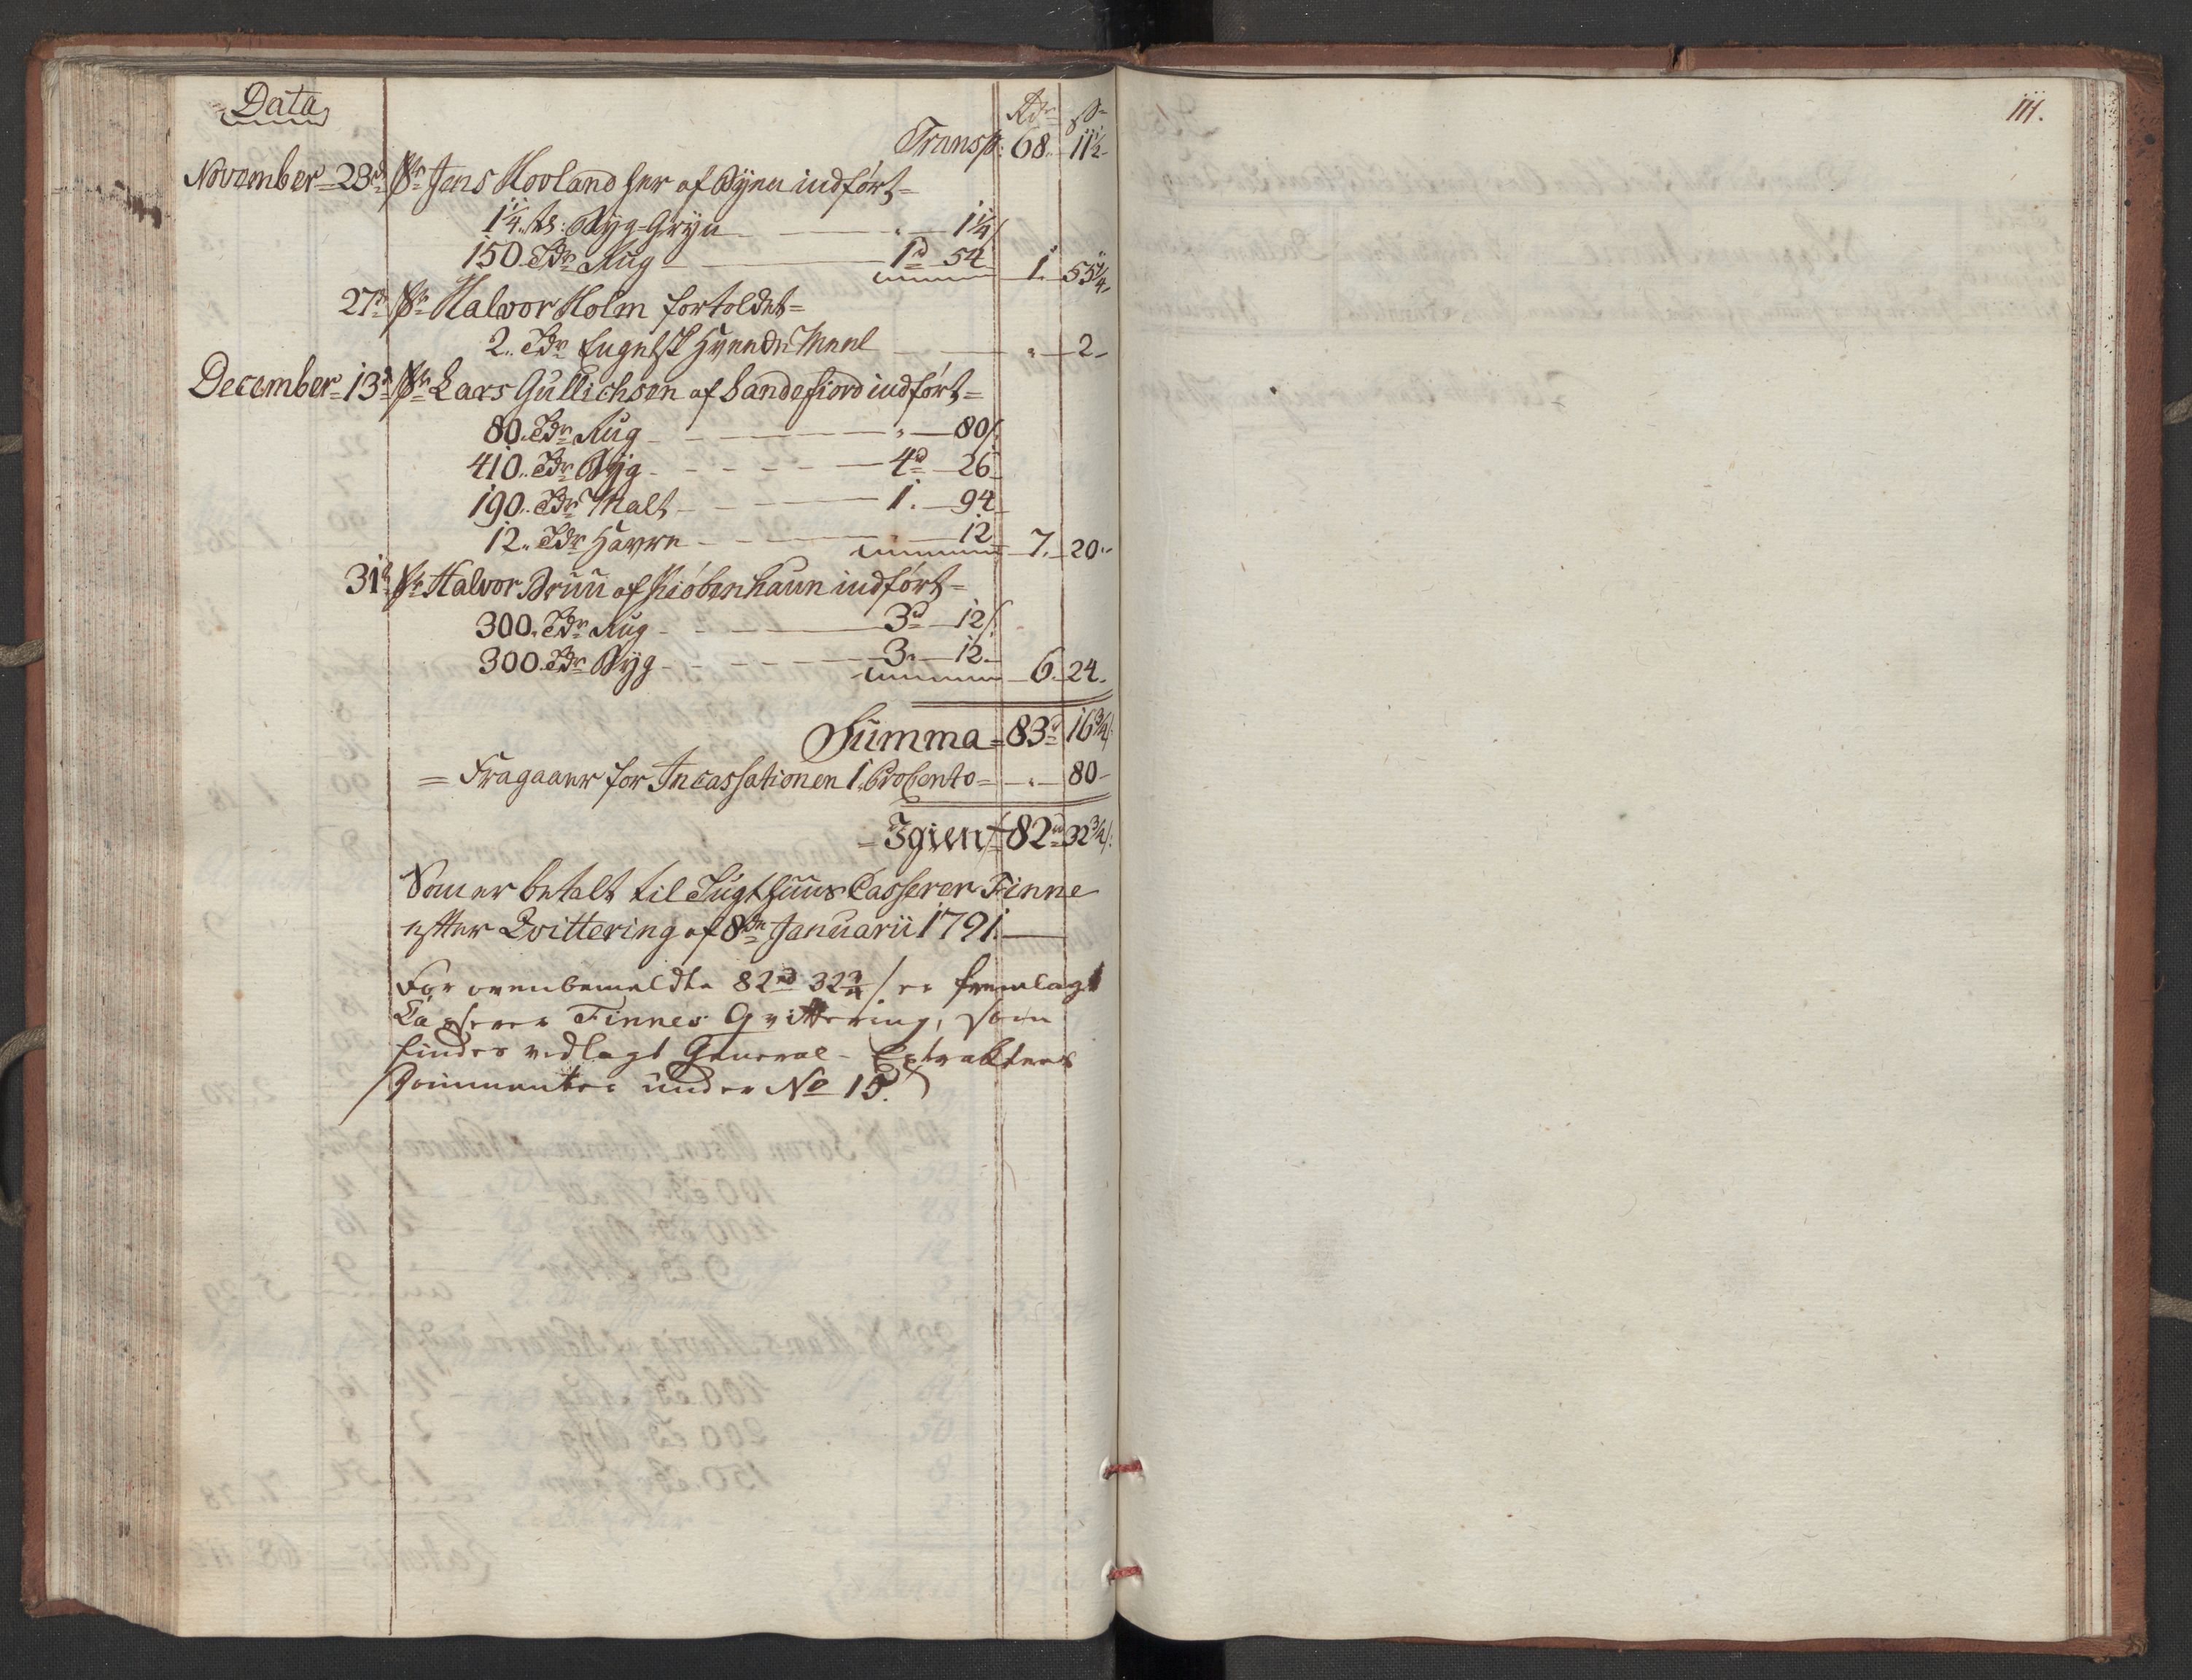 Data
Rdr s
Transp: 68. 11½
November 23de Sr Jens Hovland her af Byen indført
1¼ td: Byg-Gryn " 1¼ s
150 Tdr Rug 1d 54 1. 55¼
27de Sr Halvor Holm fortoldet
2. Tdr Engelsk Hveede Meel " 2
December 13de Sr Lars Gullichsen af Sandefiord indført
80. Tdr Rug " 80 s
410. Tdr Byg 4d 26
190. Tdr Malt 1. 94
12. Tdr Havre " 12 7. 20
31te Sr Halvor Bruu af Kiøbenhavn indført
300. Tdr Rug 3d 12 s
300. Tdr Byg 3. 12. 6. 24.
Summa 83d 16¾ s
Fragaaer for Incassationen 1. ProCento " 80
Igien 82rd 32¾ s
Som er betalt til Tugthuus Casserer Finne
efter Qvittering af 8de Januarii 1791.
For ovenbemeldte 82rd 32¾ s er fremlagt
Casserer Finnes Qvittering, som
findes vedlagt General-Extractens
Documenter under No 15.
111.